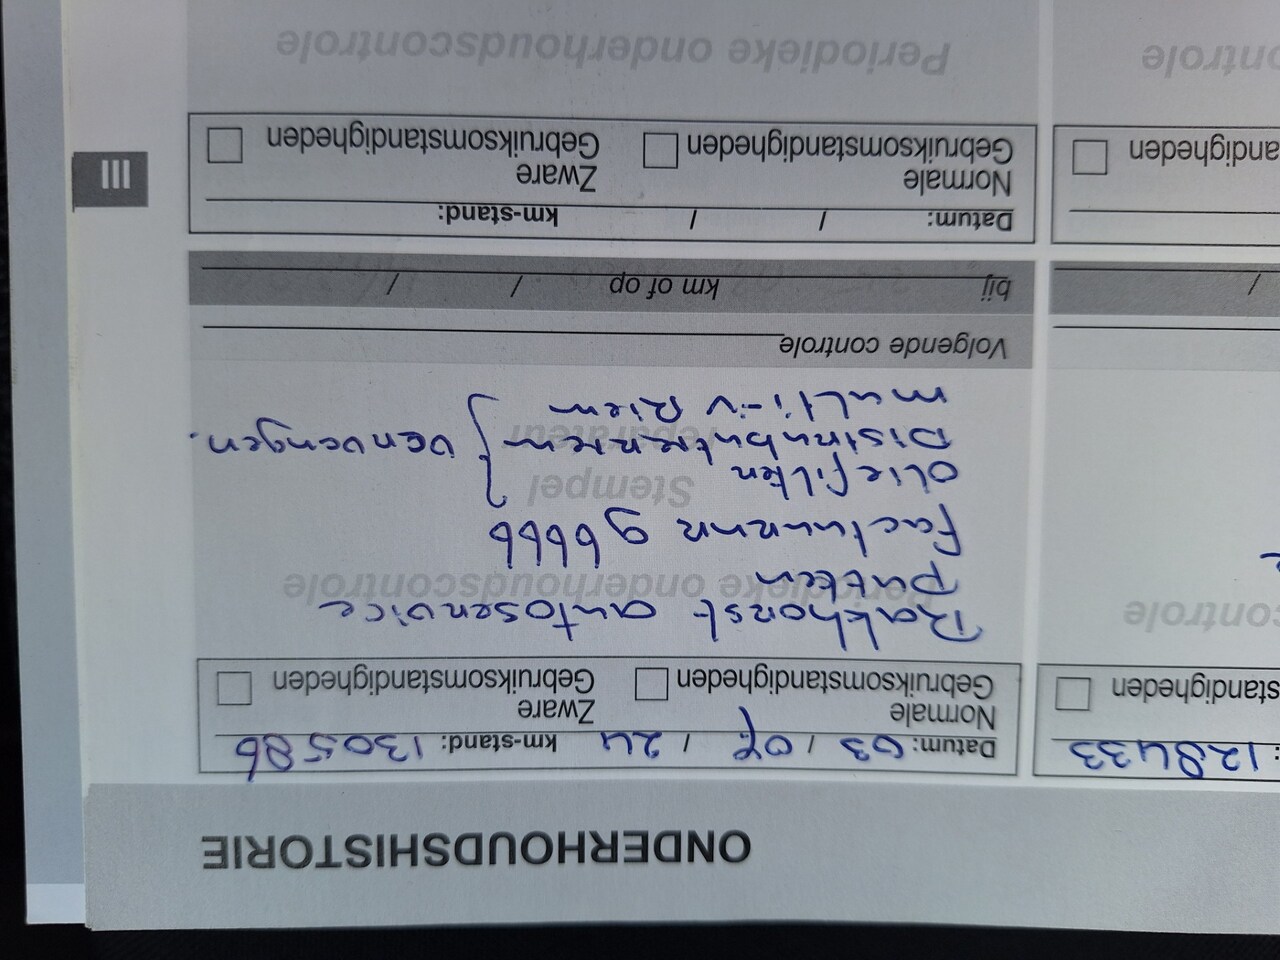 ONDERHOUDSHISTORIE
: 128433
Datum: 03 / 07 / 24 km-stand: 130586
standigheden
Normale
Gebruiksomstandigheden
Zware
Gebruiksomstandigheden
controle
Periodieke onderhoudscontrole
Rakhorst autoservice
putten
factuurnr 96666
Stempel
reparateur
oliefilter
Distributieriem } vervangen.
multi-v Riem
Volgende controle
/
bij km of op / /
Datum: / / km-stand:
andigheden
Normale
Gebruiksomstandigheden
Zware
Gebruiksomstandigheden
ontrole
Periodieke onderhoudscontrole
III